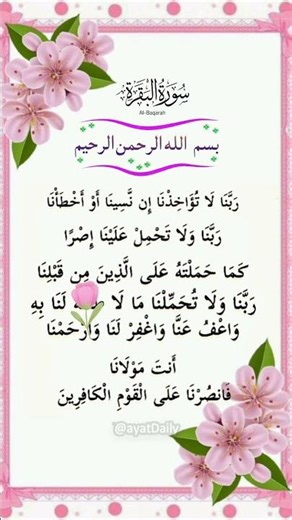 سُورَةُ الْبَقَرَةِ
Al-Baqarah
بسم الله الرحمن الرحيم
رَبَّنَا لَا تُؤَاخِذْنَا إِن نَّسِينَا أَوْ أَخْطَأْنَا
رَبَّنَا وَلَا تَحْمِلْ عَلَيْنَا إِصْرًا
كَمَا حَمَلْتَهُ عَلَى الَّذِينَ مِن قَبْلِنَا
رَبَّنَا وَلَا تُحَمِّلْنَا مَا لَا لَنَا بِهِ
وَاعْفُ عَنَّا وَاغْفِرْ لَنَا وَارْحَمْنَا
أَنتَ مَوْلَانَا
فَانْصُرْنَا عَلَى الْقَوْمِ الْكَافِرِينَ
@ayatDaily